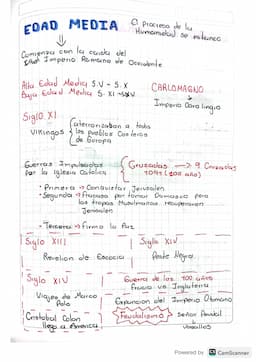 EDAD MEDIA
El proceso de la
Humanidad se estanco
Comienza con la caida del
Imperio Romano de Occidente
Alta Edad Media S.V - S.X
Baja Edad Media S.XI -
CARLOMAGNO
Imperio Carolingio
Siglo XI
Vikingos
aterrorizaban a todo
los pueblos Costeros
de Europa
Guerras Impulsadas
por la Iglesia Catolica
Cruzadas → 9 Cruzadas
1095 (200 año)
• Primera → Conquistar Jerusalen
• Segunda → Fracaso por tomar Damasco pero
las tropas Musulmanas recuperaron
Jerusalen
• Tercera → Firma la Paz
Siglo XIII
Revelion de Escocia
Siglo XIV
Peste Negra
Siglo XIV
Viajes de Marco
Polo
Guerra de los 100 años
Francia vs Inglaterra
Expancion del Imperio Otomano
Cristobal Colon
llega a America
Feudalismo
Señor Feudal
Vasallos
Powered by CS CamScanner